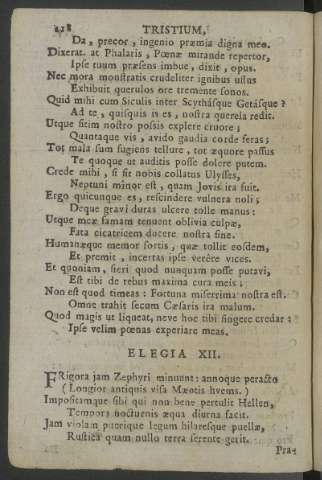 228 TRISTIUM,
Da, precor, ingenio præmia digna meo.
Dixerat. at Phalaris, Pœnæ mirande repertor,
Ipse tuum præsens imbue, dixit, opus.
Nec mora monstratis crudeliter ignibus ustus
Exhibuit querulos ore tremente sonos.
Quid mihi cum Siculis inter Scythásque Getásque?
Ad te, quisquis is es, nostra querela redit.
Utque sitim nostro possis explere cruore;
Quantaque vis, avido gaudia corde feras;
Tot mala sum fugiens tellure, tot æquore passus
Te quoque ut auditis posse dolere putem.
Crede mihi, si sit nobis collatus Ulysses,
Neptuni minor est, quam Jovis ira fuit.
Ergo quicunque es, rescindere vulnera noli;
Deque gravi duras ulcere tolle manus:
Utque meæ famam tenuent oblivia culpæ,
Fata cicatricem ducere nostra sine.
Humanæque memor sortis, quæ tollit eosdem,
Et premit, incertas ipse verére vices.
Et quoniam, fieri quod nunquam posse putavi,
Est tibi de rebus maxima cura meis;
Non est quod timeas: Fortuna miserrima nostra est.
Omne trahit secum Cæsaris ira malum.
Quod magis ut liqueat, neve hoc tibi fingere credar:
Ipse velim pœnas experiare meas.
ELEGIA XII.
FRigora jam Zephyri minuunt: annoque peracto
(Longior antiquis visa Mæotis hyems.)
Impositamque sibi qui non bene pertulit Hellen,
Tempora nocturnis æqua diurna facit.
Jam violam puerique legunt hilaresque puellæ,
Rustica quam nullo terra serente gerit.
Pra-